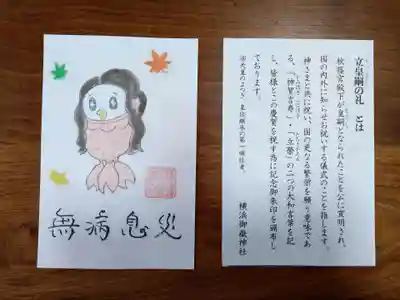 無病息災
立皇嗣の礼 とは
秋篠宮殿下が皇嗣となられたことを公に宣明され、
国の内外に知らせお祝いする儀式のことを指します。
神さまと共に祝い、国の更なる繁栄を願う意味であ
る、「神賀吉寿」・「立祭」の二つの大和言葉を記
し、皆様とこの慶賀を祝す為に記念御朱印を頒布し
ております。
皇位継承の第一順位者。
横浜御嶽神社